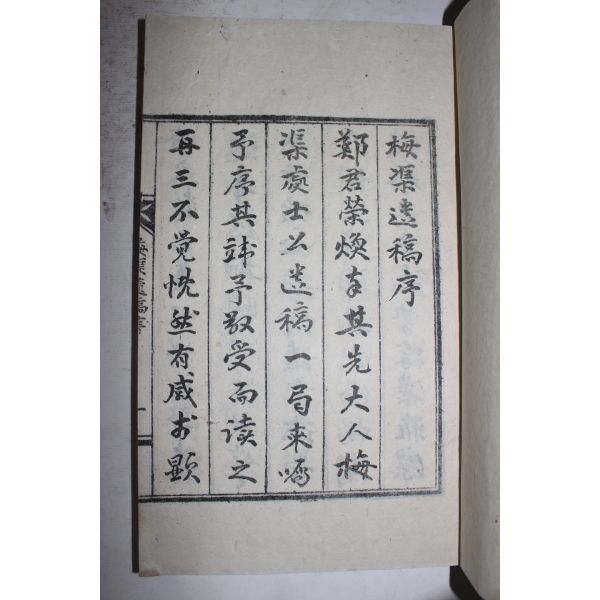 梅渠遺稿序
鄭君榮煥奉其先大人梅
渠處士公遺稿一局來囑
予序其端予敬受而读之
再三不覺怳然有感於顯
梅渠遺稿序